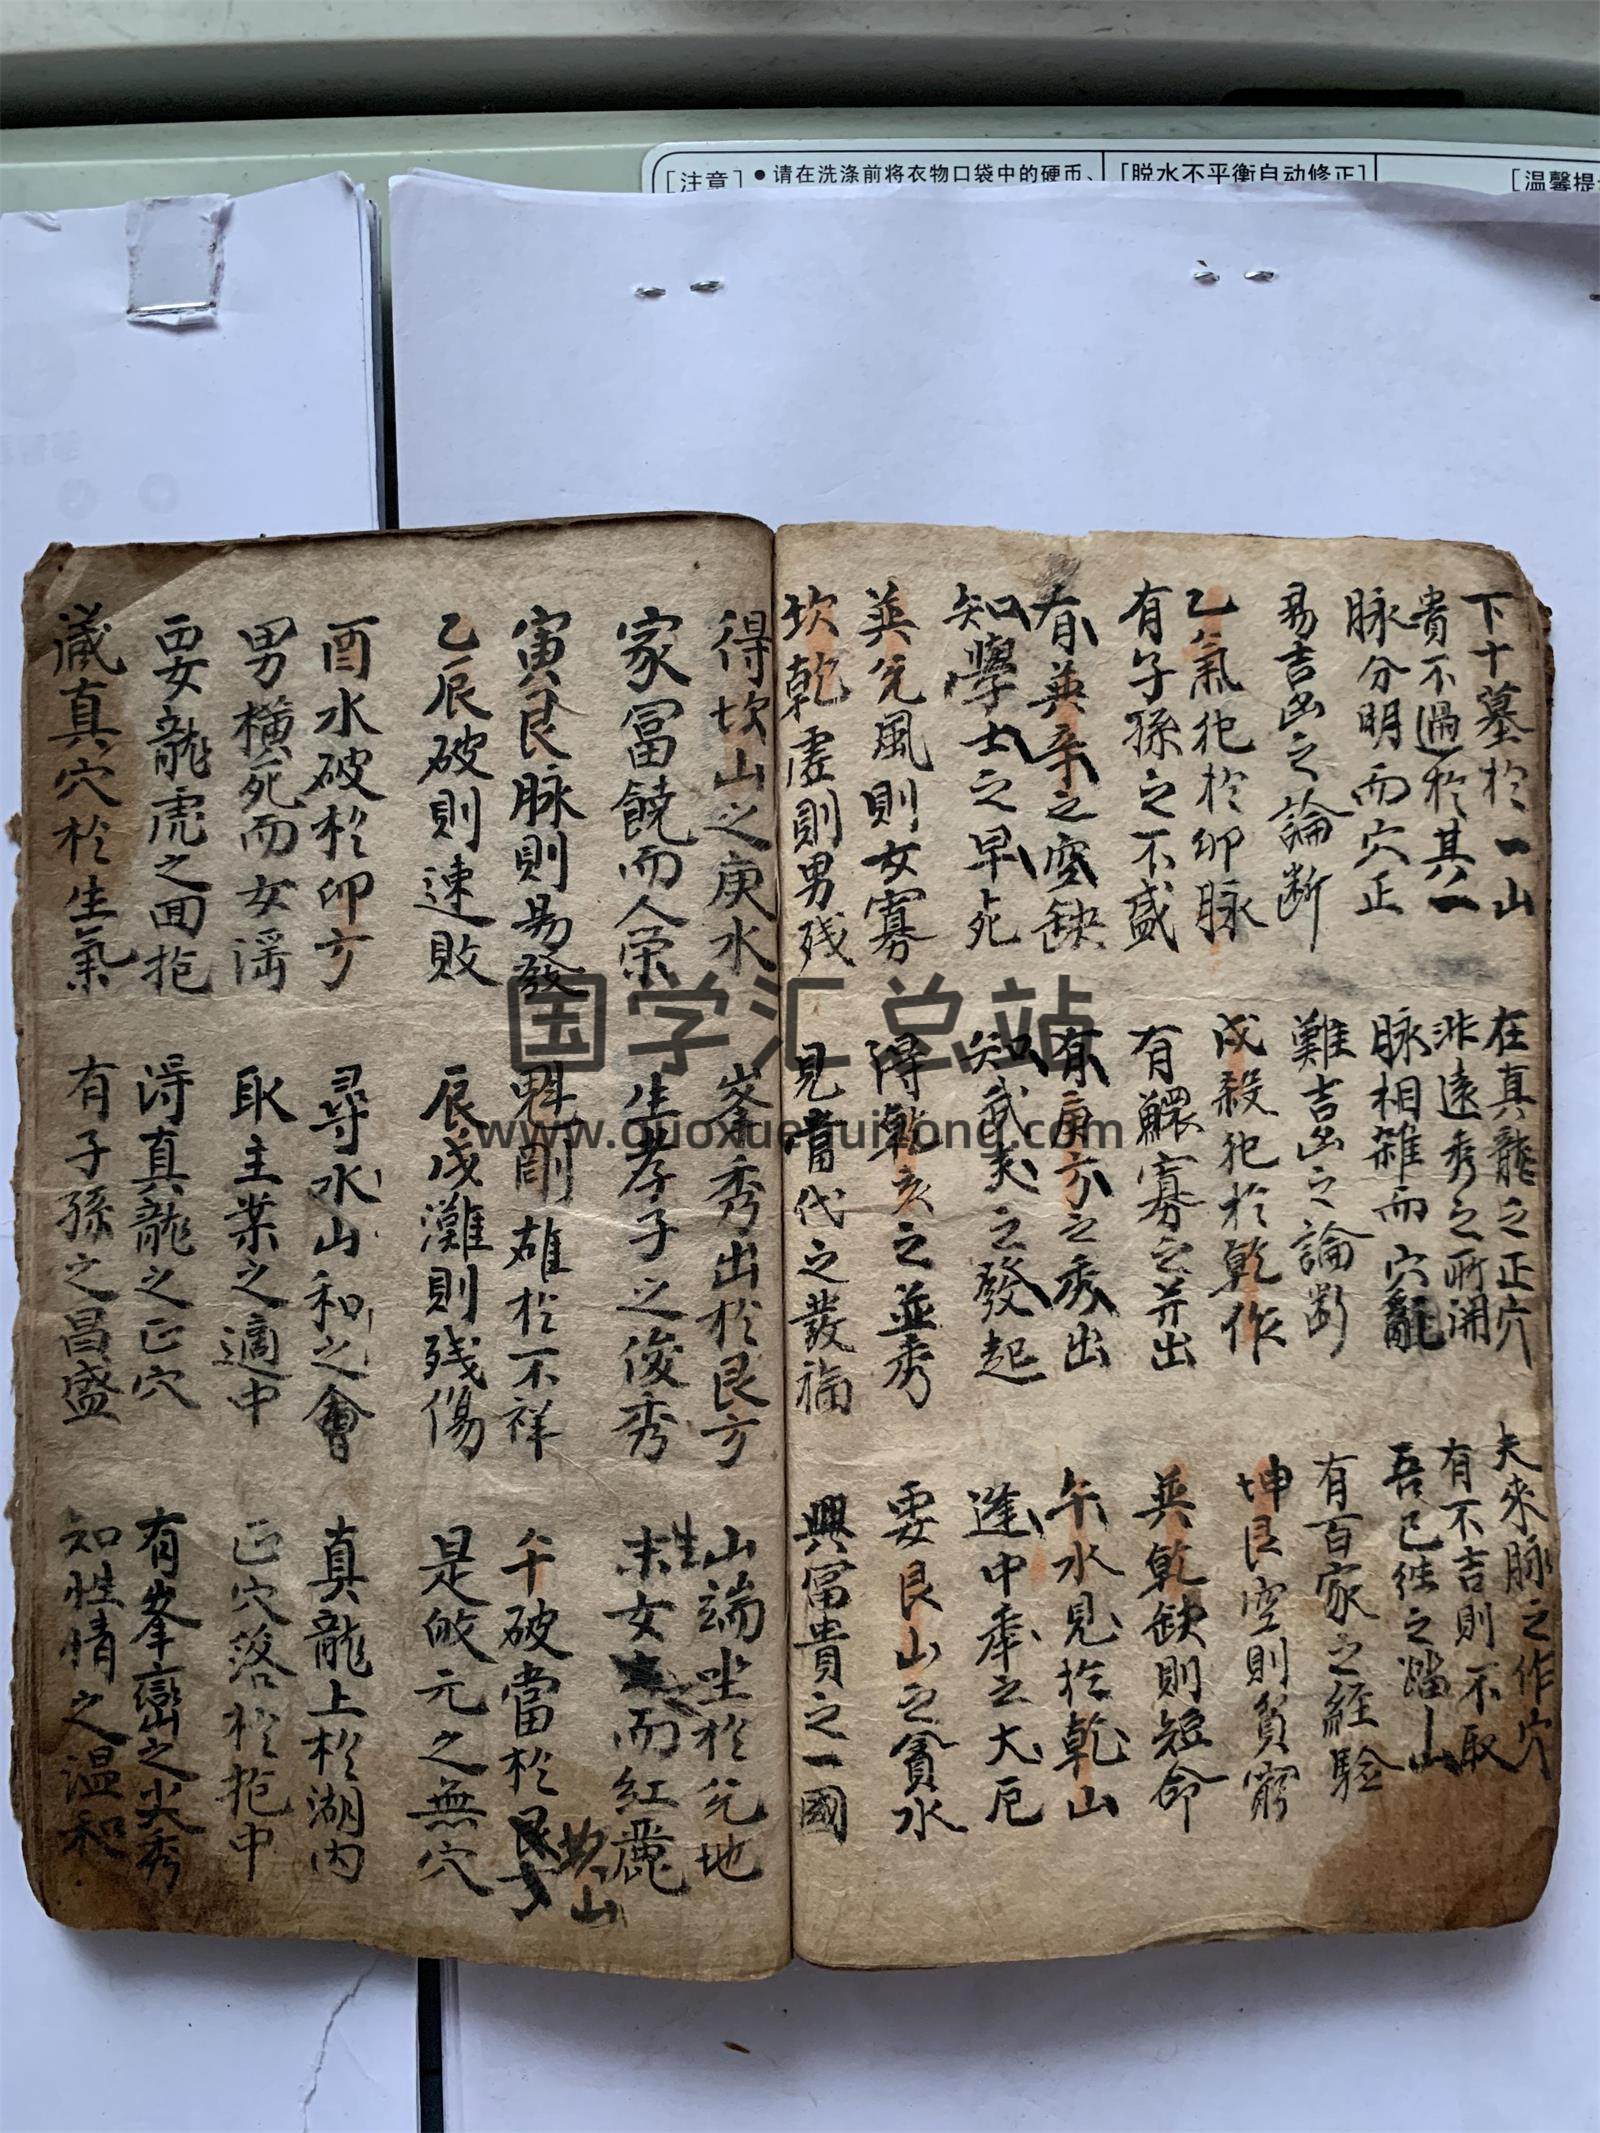 [注意] ●请在洗涤前将衣物口袋中的硬币、
[脱水不平衡自动修正]
[温馨提
下十墓於一山 在真龍之正穴 夫來脉之作穴
貴不過於其一 非遠秀之所開 有不吉則不取
脉分明而穴正 脉相雜而穴亂 吾已往之踏山
易吉凶之論断 難吉凶之論断 有百家之經驗
乙氣犯於卯脉 戌殺犯於乾作 坤艮空則貧窮
有子孫之不盛 有鰥寡之并出 巽乾缺則短命
有巽辛之空缺 有庚方之秀出 午水見於乾山
知學士之早死 知武夫之發起 逢中年之大厄
巽兌風則女寡 得乾亥之並秀 要艮山之寅水
坎乾虚則男残 見當代之發福 興富貴之一國
得坎山之庚水 峯秀出於艮方 山端坐於兌地
家富饒而人荣 生孝子之俊秀 生女而紅麗
寅艮脉則易發 魁罡雄於不祥 午破當於艮方 山
乙辰破則速敗 辰戌灘則残傷 是敗元之無穴
酉水破於卯方 尋水山和之會 真龍上於湖内
男横死而女淫 取主業之適中 正穴落於抱中
要龍虎之回抱 得真龍之正穴 有峯巒之尖秀
藏真穴於生氣 有子孫之昌盛 知性情之温和
国学汇总站
www.guoxuehuizong.com